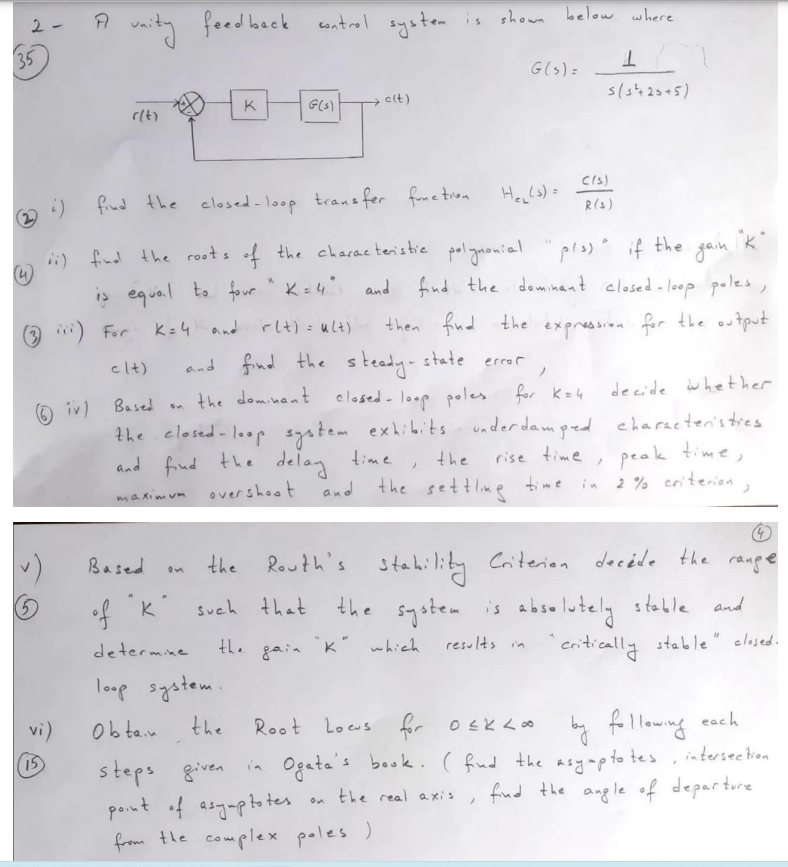 2 - A unity feedback control system is shown below where
35
G(s) = 1 / s(s²+2s+5)
r(t) + - K G(s) c(t)
2 i) find the closed-loop transfer function H_CL(s) = C(s) / R(s)
4 ii) find the roots of the characteristic polynomial "p(s)" if the gain "K"
is equal to four "K=4" and find the dominant closed-loop poles,
3 iii) For K=4 and r(t) = u(t) then find the expression for the output
c(t) and find the steady-state error,
6 iv) Based on the dominant closed-loop poles for K=4 decide whether
the closed-loop system exhibits underdamped characteristics
and find the delay time, the rise time, peak time,
maximum overshoot and the settling time in 2% criterion,
4
v) Based on the Routh's Stability Criterion decide the range
5 of "K" such that the system is absolutely stable and
determine the gain "K" which results in "critically stable" closed-
loop system.
vi) Obtain the Root Locus for 0≤K<∞ by following each
15 steps given in Ogata's book. (find the asymptotes, intersection
point of asymptotes on the real axis, find the angle of departure
from the complex poles)